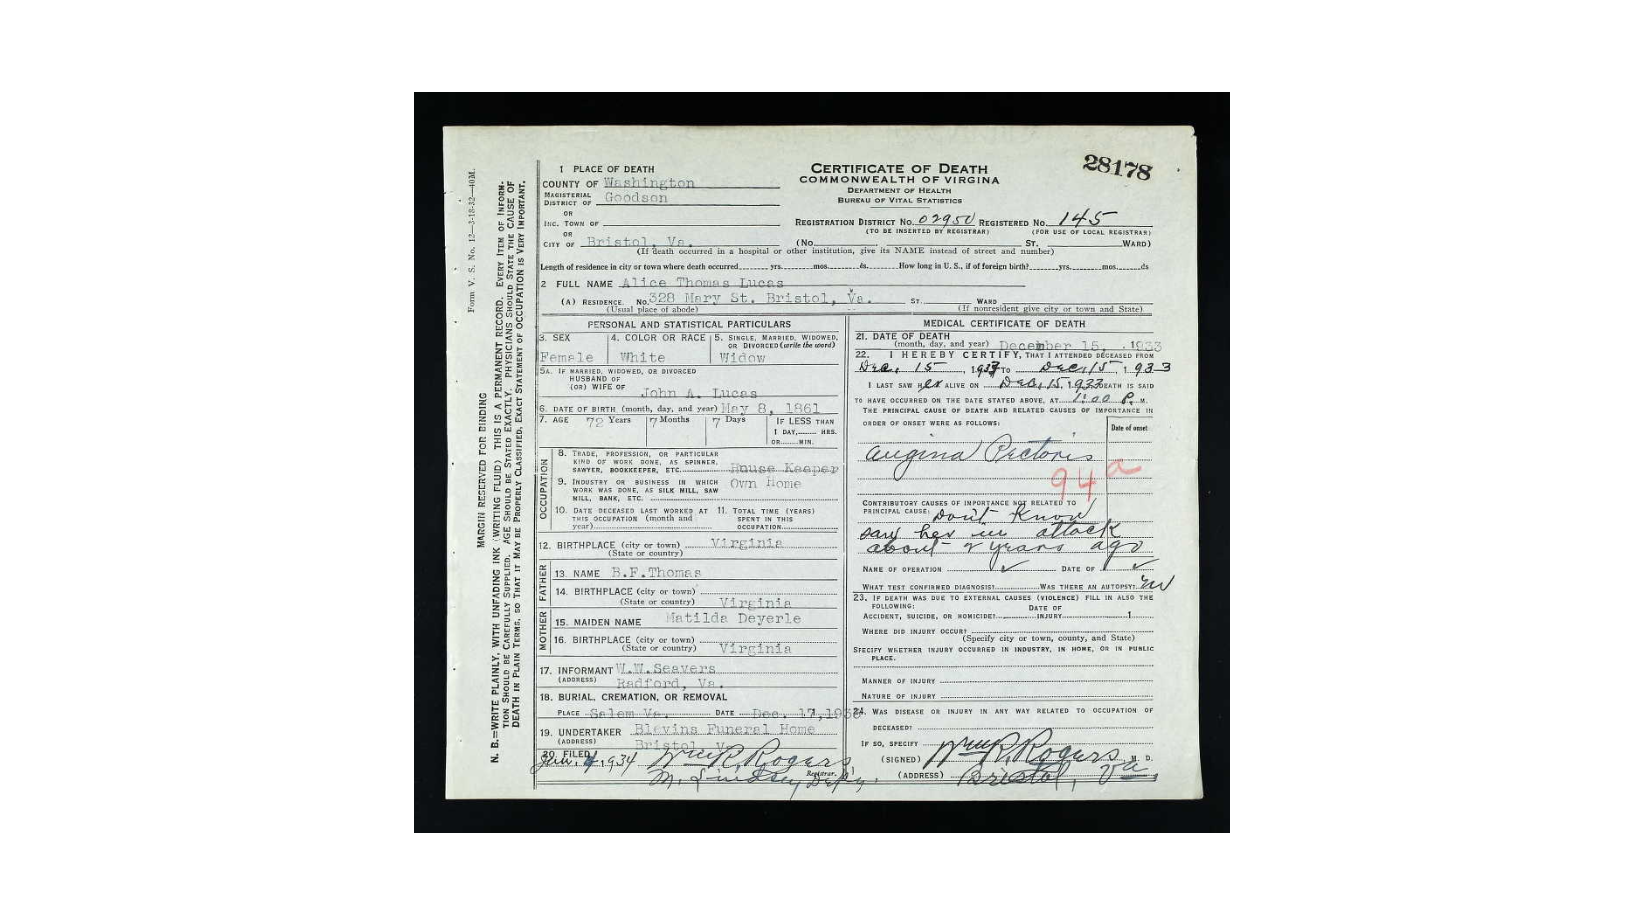 28178
1 PLACE OF DEATH
CERTIFICATE OF DEATH
COMMONWEALTH OF VIRGINIA
DEPARTMENT OF HEALTH
BUREAU OF VITAL STATISTICS
COUNTY OF Washington
MAGISTERIAL DISTRICT OF Goodson
OR
INC. TOWN OF
REGISTRATION DISTRICT NO. 02950 REGISTERED NO. 145
(TO BE INSERTED BY REGISTRAR) (FOR USE OF LOCAL REGISTRAR)
OR
CITY OF Bristol, Va. (No. ST. WARD)
(If death occurred in a hospital or other institution, give its NAME instead of street and number)
Length of residence in city or town where death occurred yrs. mos. ds. How long in U. S., if of foreign birth? yrs. mos. ds
2 FULL NAME Alice Thomas Lucas
(A) RESIDENCE. No. 328 Mary St. Bristol, Va. ST. WARD
(Usual place of abode) (If nonresident give city or town and State)
PERSONAL AND STATISTICAL PARTICULARS
3. SEX 4. COLOR OR RACE 5. SINGLE, MARRIED, WIDOWED, OR DIVORCED (write the word)
Female White Widow
5A. IF MARRIED, WIDOWED, OR DIVORCED
HUSBAND OF
(OR) WIFE OF
John A. Lucas
6. DATE OF BIRTH (month, day, and year) May 8, 1861
7. AGE 72 Years 7 Months 7 Days IF LESS THAN
1 DAY, HRS.
OR MIN.
OCCUPATION
8. TRADE, PROFESSION, OR PARTICULAR
KIND OF WORK DONE, AS SPINNER,
SAWYER, BOOKKEEPER, ETC. House Keeper
9. INDUSTRY OR BUSINESS IN WHICH Own Home
WORK WAS DONE, AS SILK MILL, SAW
MILL, BANK, ETC.
10. DATE DECEASED LAST WORKED AT THIS OCCUPATION (month and year)
11. TOTAL TIME (YEARS) SPENT IN THIS OCCUPATION
12. BIRTHPLACE (city or town) Virginia
(State or country)
FATHER
13. NAME B.F.Thomas
14. BIRTHPLACE (city or town)
(State or country) Virginia
MOTHER
15. MAIDEN NAME Matilda Deyerle
16. BIRTHPLACE (city or town)
(State or country) Virginia
17. INFORMANT W.W.Seavers
(ADDRESS) Radford, Va.
18. BURIAL, CREMATION, OR REMOVAL
PLACE Salem Va. DATE Dec. 17, 1933
19. UNDERTAKER Blevins Funeral Home
(ADDRESS) Bristol, Va.
20. FILED Jan. 4, 1934 Wm R. Rogers
Registrar.
M. Lindsey Dep'y.
MEDICAL CERTIFICATE OF DEATH
21. DATE OF DEATH
(month, day, and year) December 15, 1933
22. I HEREBY CERTIFY, THAT I ATTENDED DECEASED FROM
Dec. 15, 1933 TO Dec. 15, 1933
I LAST SAW HER ALIVE ON Dec. 15, 1933 DEATH IS SAID
TO HAVE OCCURRED ON THE DATE STATED ABOVE, AT 1:00 P. M.
THE PRINCIPAL CAUSE OF DEATH AND RELATED CAUSES OF IMPORTANCE IN
ORDER OF ONSET WERE AS FOLLOWS:
Date of onset
Angina Pectoris
94a
CONTRIBUTORY CAUSES OF IMPORTANCE NOT RELATED TO
PRINCIPAL CAUSE: Don't Know
saw her in attack
about 2 years ago
NAME OF OPERATION DATE OF
WHAT TEST CONFIRMED DIAGNOSIS? WAS THERE AN AUTOPSY? No
23. IF DEATH WAS DUE TO EXTERNAL CAUSES (VIOLENCE) FILL IN ALSO THE
FOLLOWING:
ACCIDENT, SUICIDE, OR HOMICIDE? DATE OF INJURY 1
WHERE DID INJURY OCCUR?
(Specify city or town, county, and State)
SPECIFY WHETHER INJURY OCCURRED IN INDUSTRY, IN HOME, OR IN PUBLIC
PLACE.
MANNER OF INJURY
NATURE OF INJURY
24. WAS DISEASE OR INJURY IN ANY WAY RELATED TO OCCUPATION OF
DECEASED?
IF SO, SPECIFY
(SIGNED) Wm R. Rogers M. D.
(ADDRESS) Bristol, Va.
Form V. S. No. 12—3-18-32—40M.
MARGIN RESERVED FOR BINDING
N. B.—WRITE PLAINLY, WITH UNFADING INK (WRITING FLUID) THIS IS A PERMANENT RECORD. EVERY ITEM OF INFORM-
TION SHOULD BE CAREFULLY SUPPLIED. AGE SHOULD BE STATED EXACTLY. PHYSICIANS SHOULD STATE THE CAUSE OF
DEATH IN PLAIN TERMS, SO THAT IT MAY BE PROPERLY CLASSIFIED. EXACT STATEMENT OF OCCUPATION IS VERY IMPORTANT.